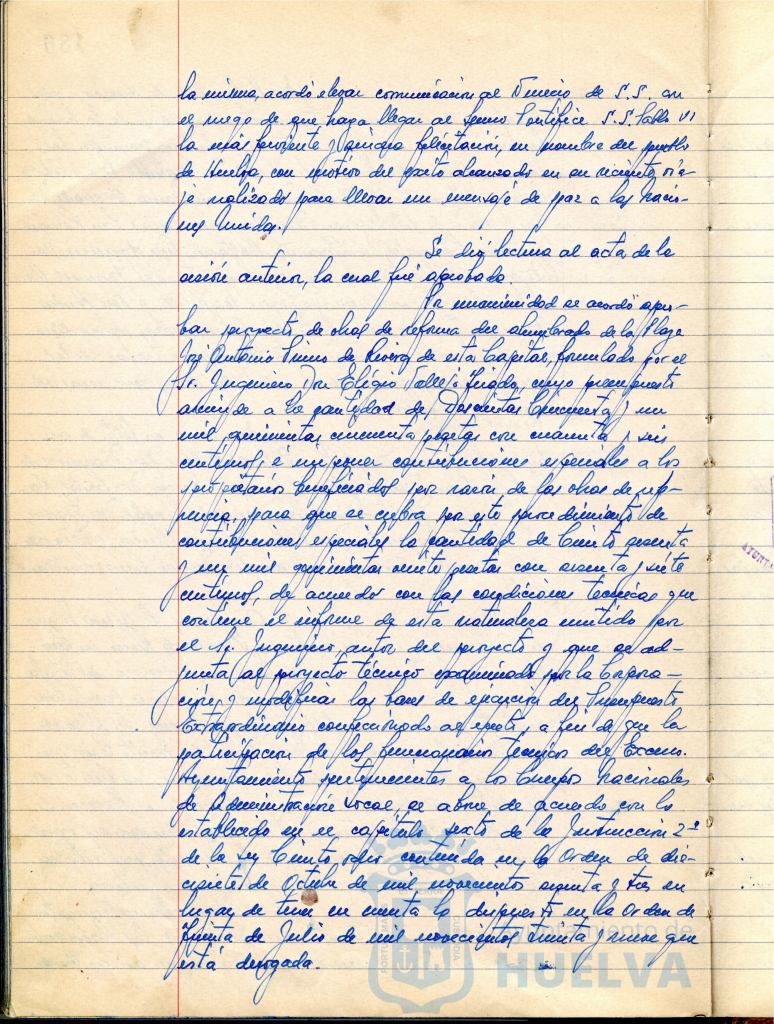 la misma, acordó elevar comunicación al Nuncio de S.S. con
el ruego de que haga llegar al Sumo Pontífice S.S. Pablo VI
la más ferviente y sincera felicitación, en nombre del pueblo
de Huelva, con motivo del éxito alcanzado en su reciente via-
je realizado para llevar un mensaje de paz a las Nacio-
nes Unidas.
Se dió lectura al acta de la
sesión anterior, la cual fué aprobada.
Por unanimidad se acordó apro-
bar proyecto de obras de reforma del alumbrado de la Plaza
José Antonio Primo de Rivera de esta Capital, formulado por el
Sr. Ingeniero Don Eligio Vallejo cuyo presupuesto
asciende a la cantidad de Doscientas Cincuenta y un
mil quinientas cincuenta pesetas con cuarenta y seis
centimos, é imponer contribuciones especiales a los
propietarios beneficiados por razón de las obras de refe-
rencia, para que se cubra por este procedimiento de
contribuciones especiales la cantidad de Ciento sesenta
y un mil quinientas veinte pesetas con sesenta y siete
centimos, de acuerdo con las condiciones técnicas que
contiene el informe de esta naturaleza emitido por
el Sr. Ingeniero, autor del proyecto y que se ad-
junta al proyecto técnico examinado por la Corpora-
ción, y modificar las bases de ejecución del Presupuesto
Extraordinario confeccionado al efecto, a fin de que la
participación de los funcionarios Técnicos del Excmo.
Ayuntamiento pertenecientes a los Cuerpos Nacionales
de Administración Local, se abone de acuerdo con lo
establecido en el capítulo sexto de la Instrucción 2ª
de la Ley contenida en la Orden de die-
cisiete de Octubre de mil novecientos sesenta y tres en
lugar de tener en cuenta lo dispuesto en la Orden de
Treinta de Julio de mil novecientos treinta y nueve que
está derogada.
Ayuntamiento de
HUELVA